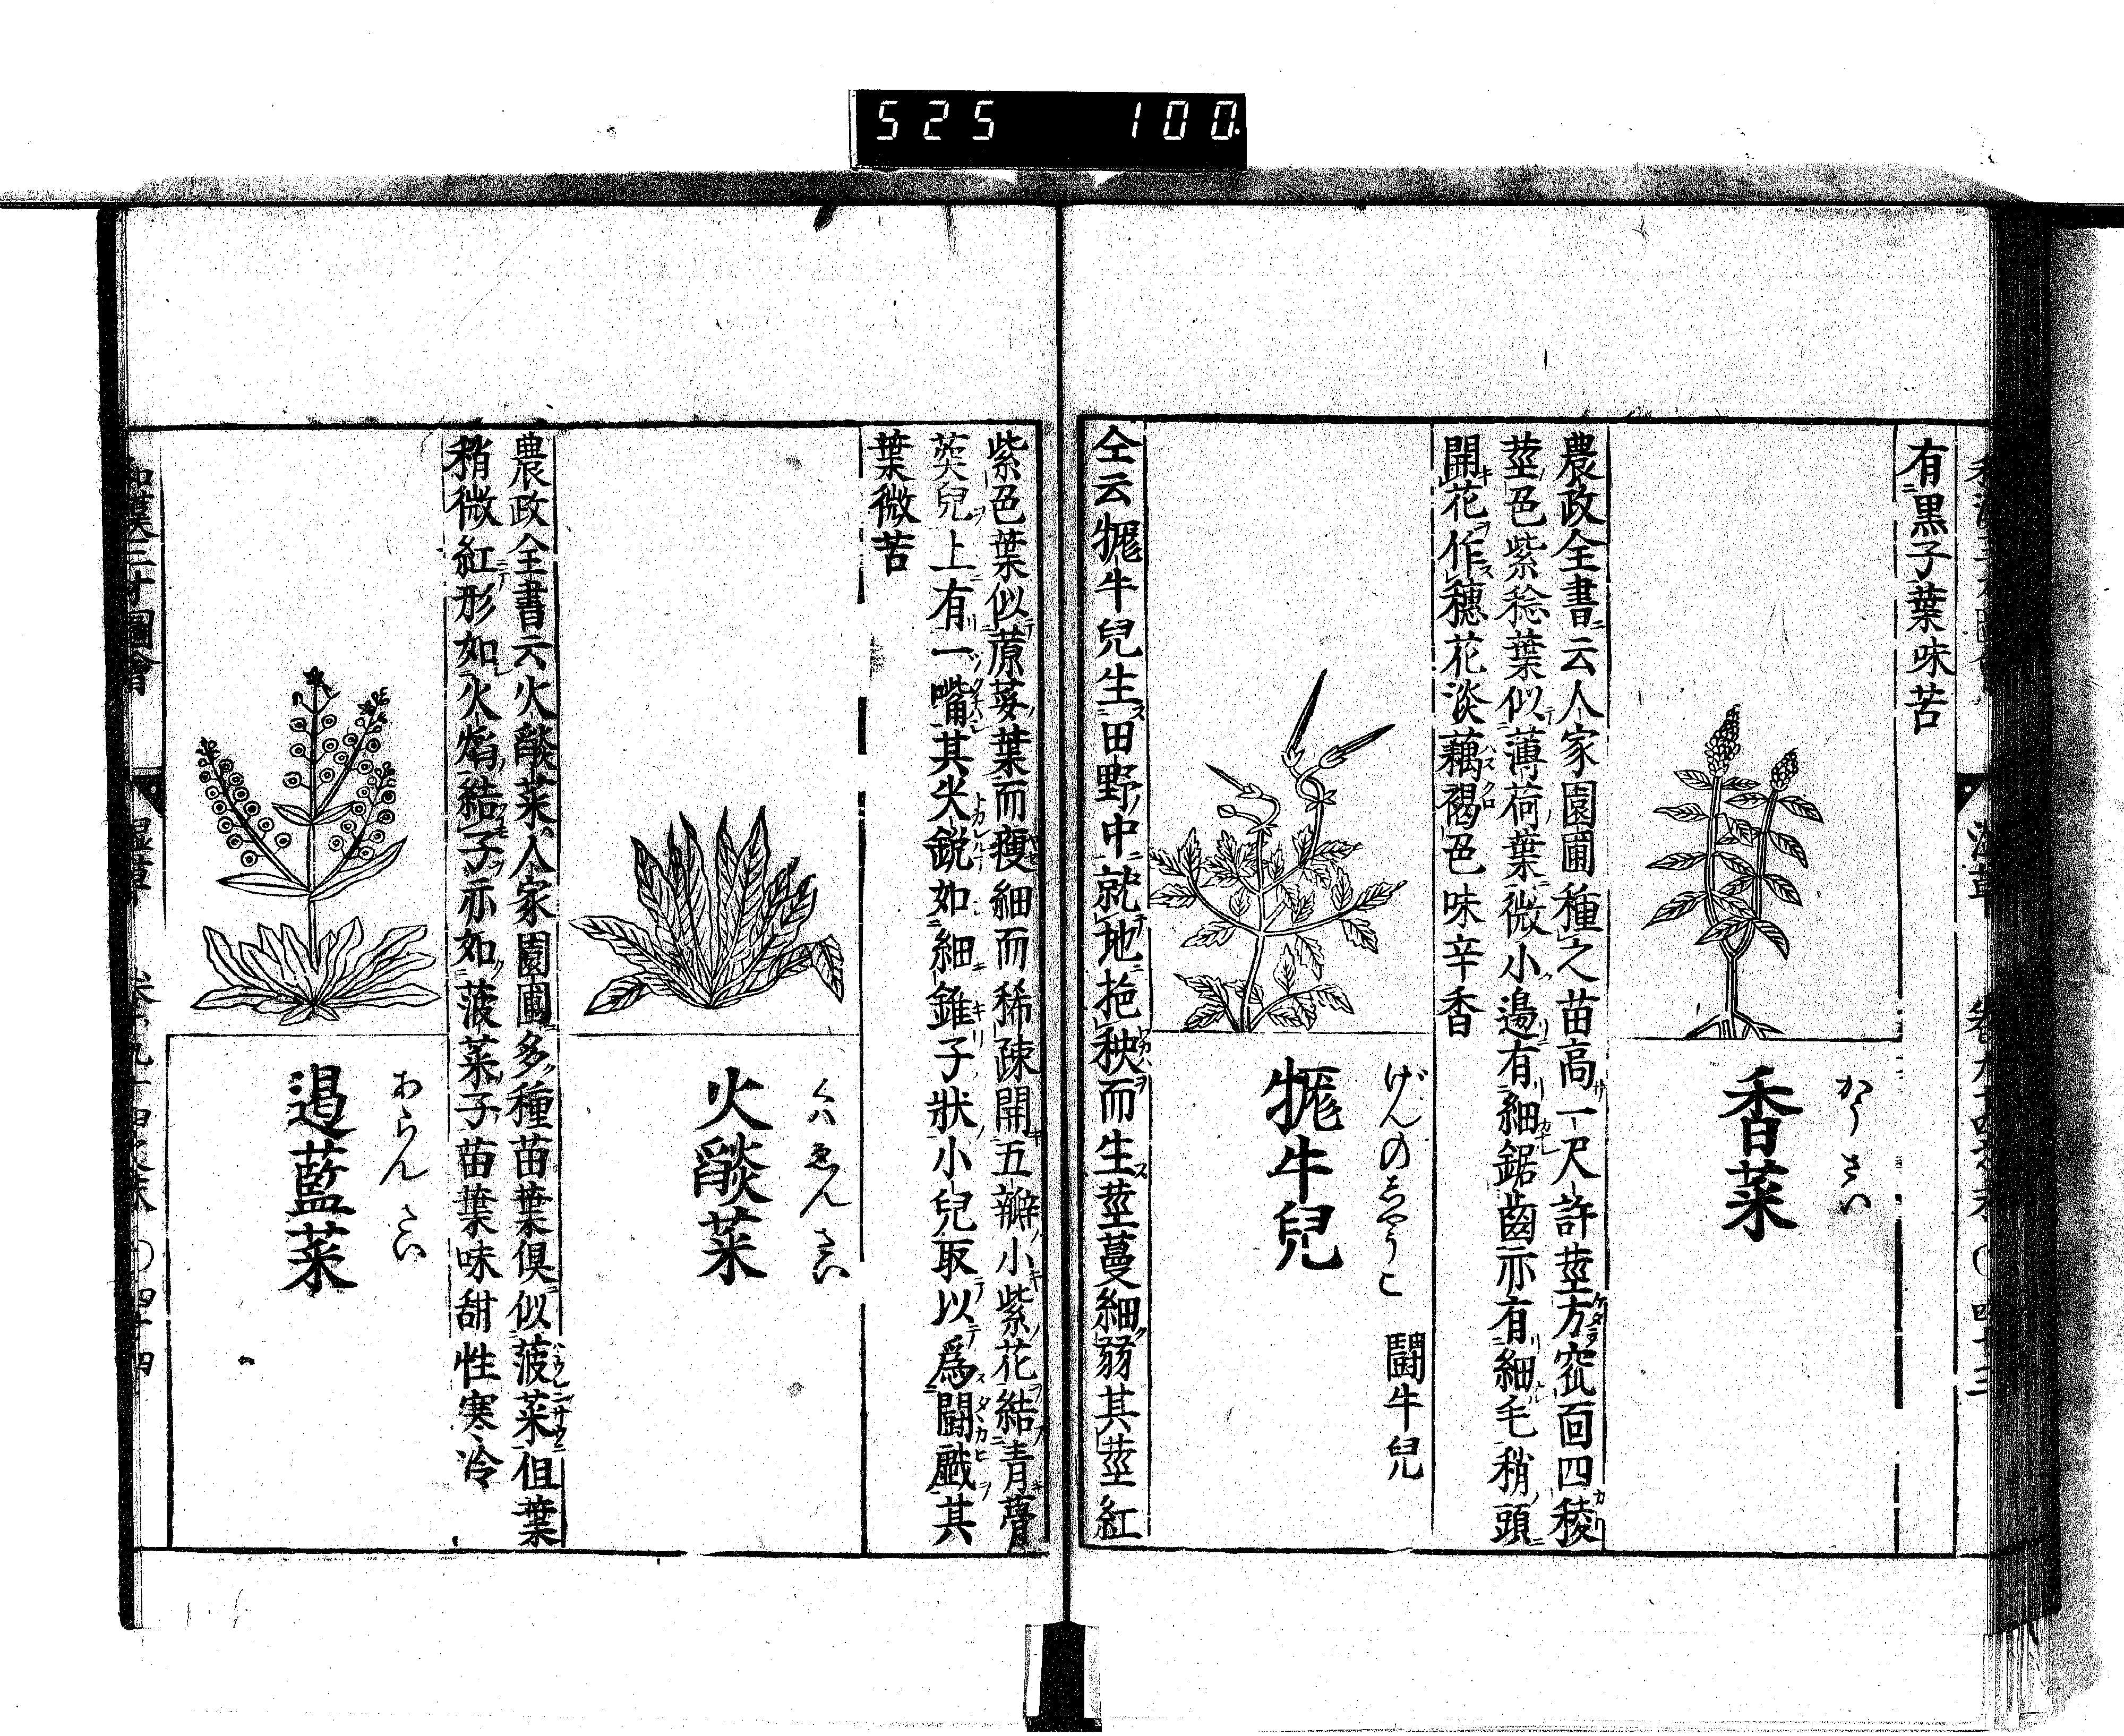 525 100
有黒子葉味苦
香菜
かう さい
農政全書云人家園圃種之苗高一尺許莖方窊面四稜
莖色紫稔葉似薄荷葉微小邉有細鋸齒亦有細毛稍頭
開花作穗花淡藕褐色味辛香
牻牛兒
げんのしやうこ 鬪牛兒
仝云牻牛兒生田野中就地拖秧而生莖蔓細弱其莖紅
紫色葉似蒝荽葉而瘦細而稀疎開五瓣小紫花結青蓇
葖兒上有一嘴其尖銳如細錐子狀小兒取以爲鬪戲其
葉微苦
火燄菜
くハゑんさい
農政全書云火燄菜人家園圃多種苗葉倶似菠菜但葉
稍微紅形如火焰結子亦如菠菜子苗葉味甜性寒冷
遏藍菜
あらんさい
和漢三才圖會